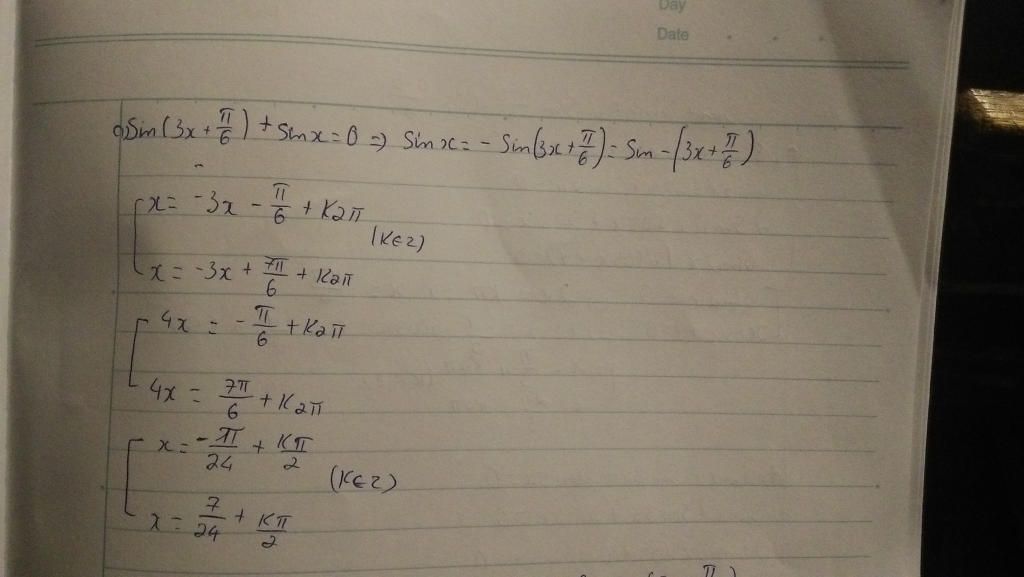 Day
Date
c) Sin(3x + π/6) + Sinx = 0 => Sinx = - Sin(3x + π/6) = Sin -(3x + π/6)
x = -3x - π/6 + K2π
(K∈Z)
x = -3x + 7π/6 + K2π
4x = - π/6 + K2π
4x = 7π/6 + K2π
x = -π/24 + Kπ/2
(K∈Z)
x = 7/24 + Kπ/2